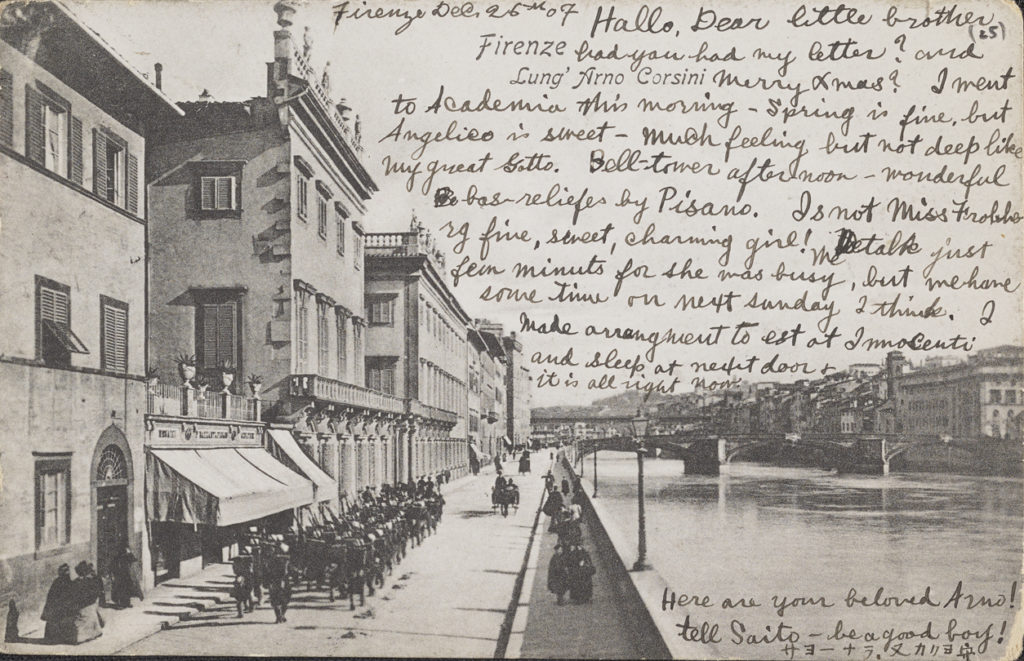 Firenze Dec, 26th 07
Hallo, Dear little brother,
(25)
Firenze
had you had my letter? and
Lung' Arno Corsini
Merry Xmas? I went
to Academia this morning - Spring is fine, but
Angelico is sweet - much feeling but not deep like
my great Gotto. Bell-tower afternoon - wonderful
bas-reliefs by Pisano. Is not Miss Frohbe
rg fine, sweet, charming girl! We talk just
few minuts for she was busy, but we have
some time on next sunday I think. I
made arrangment to est at Innocenti
and sleep at next door &
it is all right now.
Here are your beloved Arno!
tell Saito - be a good boy!
サヨーナラ、又カリヨ